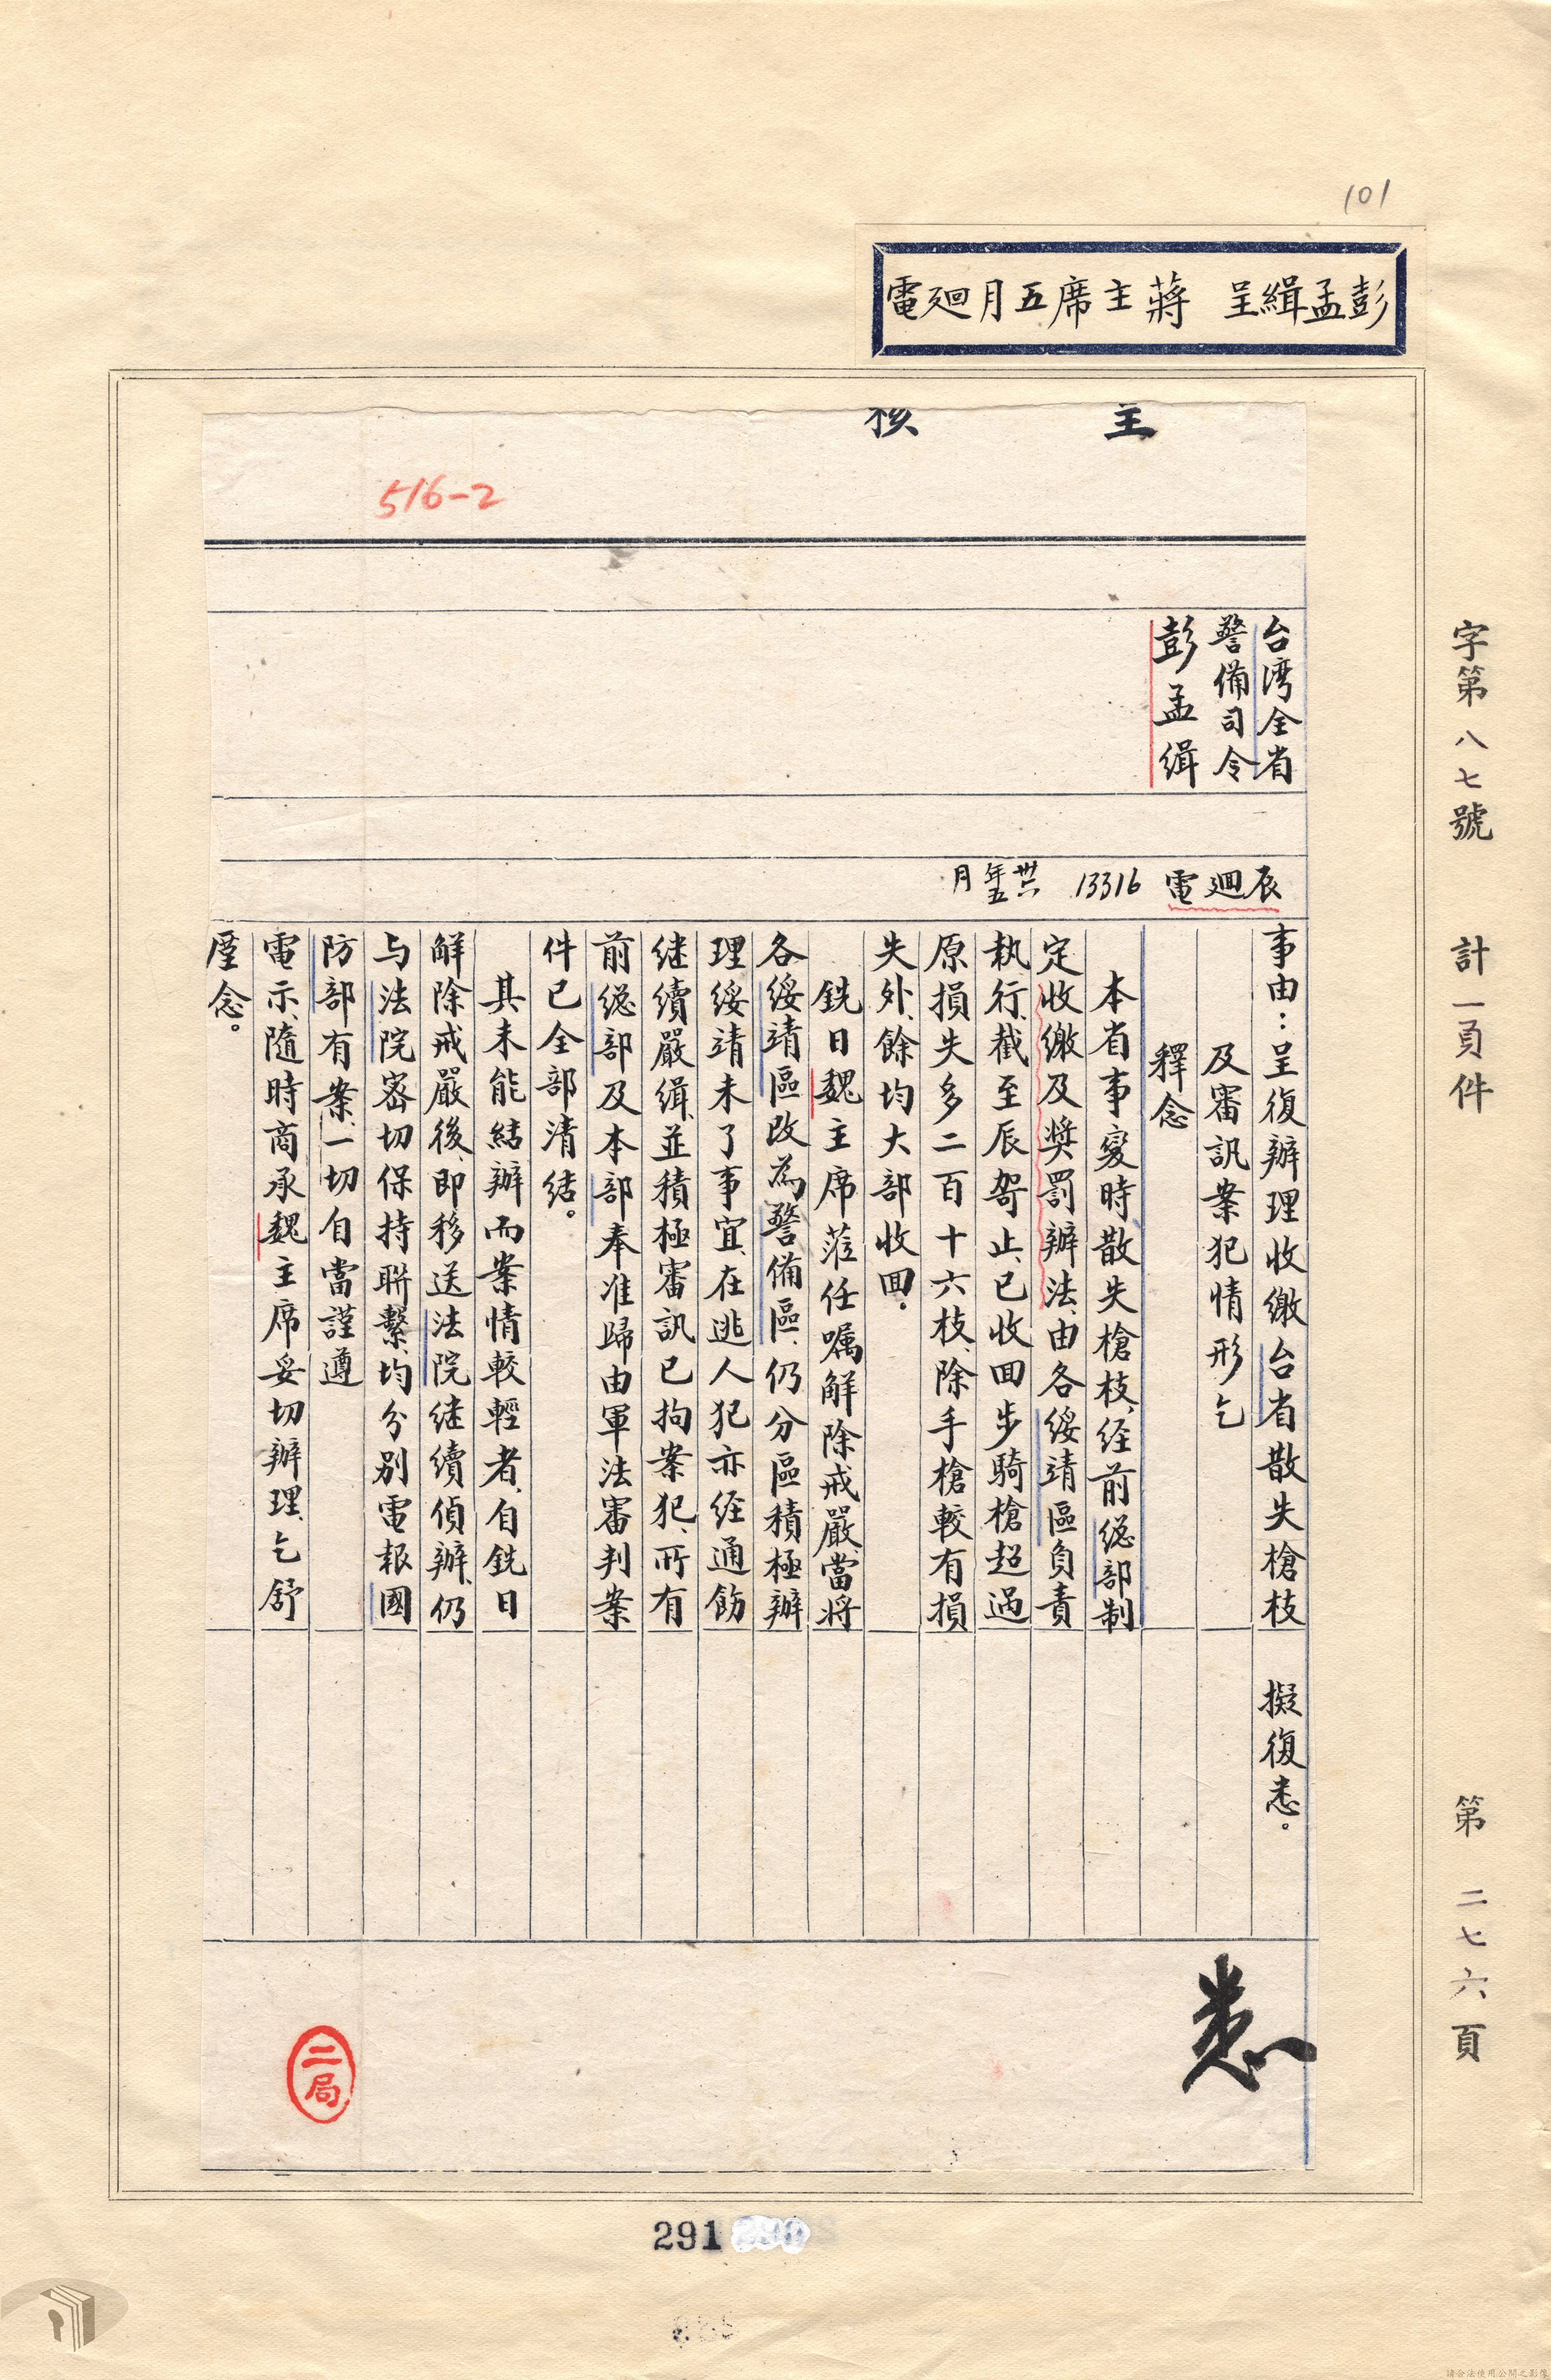 101
彭孟緝呈 蔣主席五月廻電
主
核
516-2
台湾全省
警備司令
彭孟緝
辰廻電 13316 卅六年五月
事由：呈復辦理收繳台省散失槍枝
及審訊案犯情形乞
釋念
本省事变時散失槍枝、经前総部制
定收繳及奬罰辦法、由各綏靖區負責
執行、截至辰哿止、已收回步騎槍超過
原損失多二百十六枝、除手槍較有損
失外、餘均大部收回。
銑日魏主席蒞任嘱解除戒嚴、當将
各綏靖區改為警備區、仍分區積極辦
理綏靖未了事宜、在逃人犯亦经通飭
继續嚴缉、並積極審訊已拘案犯、所有
前総部及本部奉准歸由軍法審判案
件已全部清結。
其未能結辦而案情較輕者、自銑日
解除戒嚴後、即移送法院继續偵辦、仍
与法院密切保持聨繫、均分别電報國
防部有案、一切自當謹遵
電示、隨時商承魏主席妥切辦理、乞舒
廑念。
擬復悉。
悉
二局
字第八七號 計一頁件 第二七六頁
291
請合法使用公開之影像